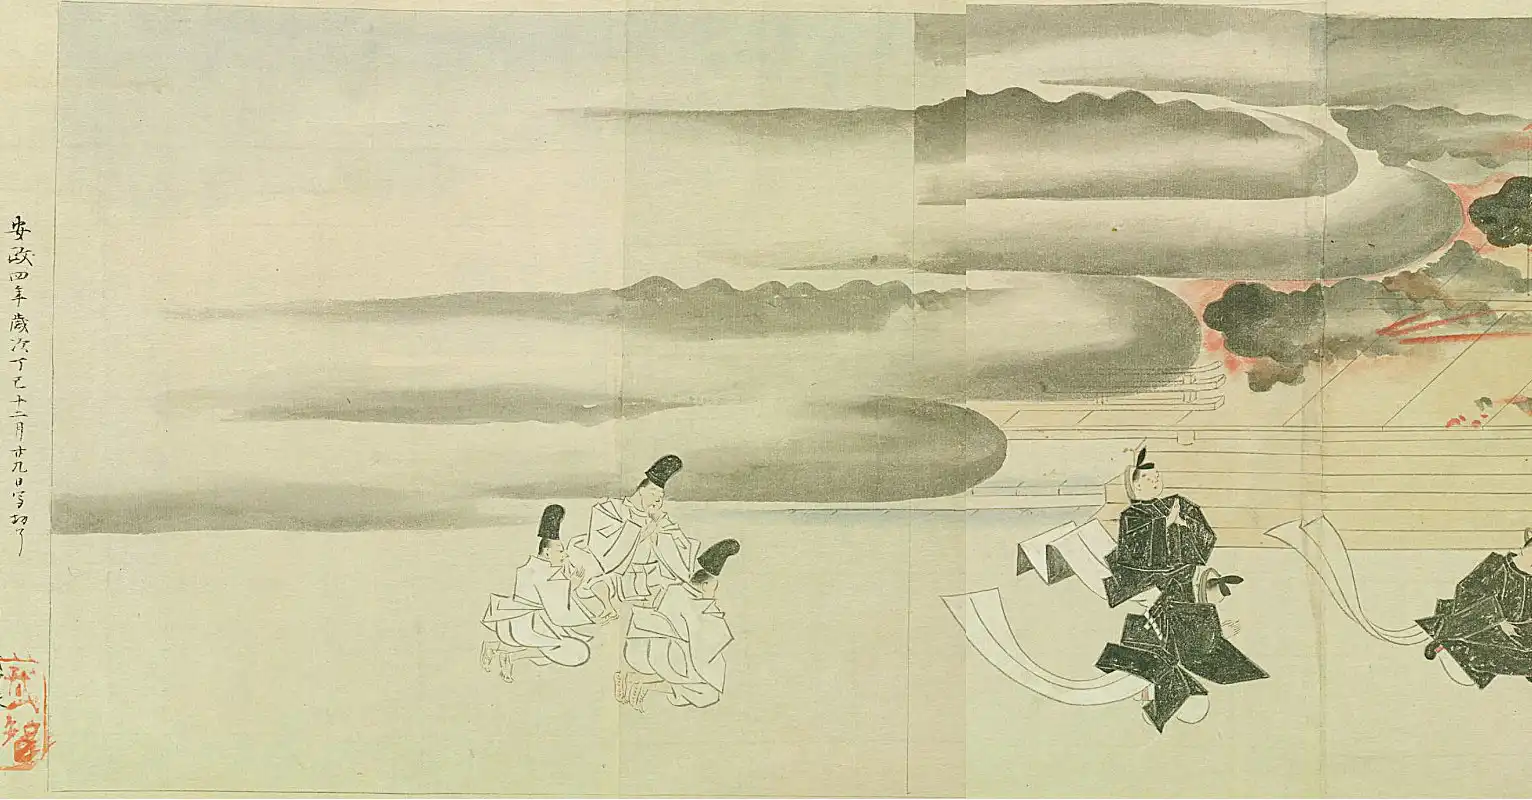 安政四年歳次丁巳十二月廿九日写功了